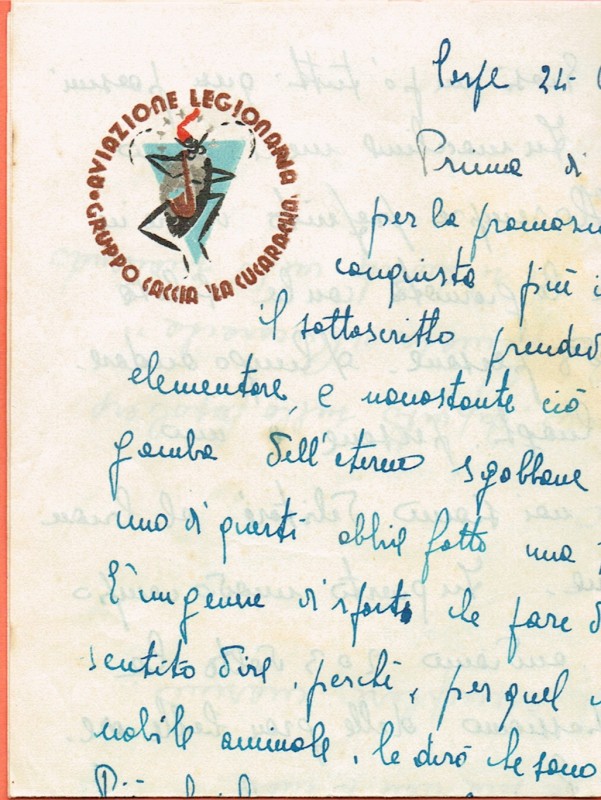 AVIAZIONE LEGIONARIA
GRUPPO CACCIA "LA CUCARACHA"
24-
Prima di
per la promozi
conquista più i
il sottoscritto prende
elementare, e nonostante ciò
gamba dell'eterno sgobbone
uno di questi abbia fatto una
È un genere di sport che fare d
sentito dire, perchè, per quel
nobile animale, le dirò che sono
Più